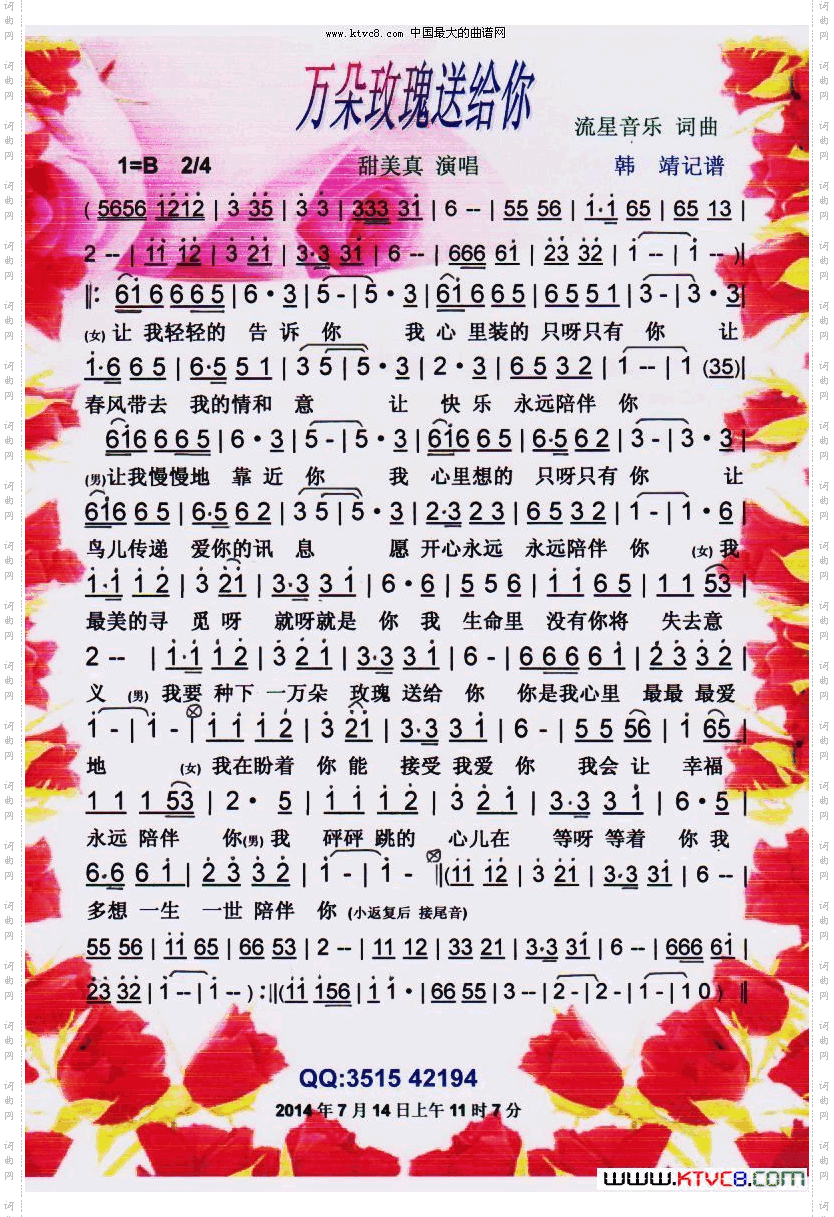 www.ktvc8.com 中国最大的曲谱网
万朵玫瑰送给你
流星音乐 词曲
1=B 2/4 甜美真 演唱 韩 靖记谱
( 5656 1212 | 3 35 | 3 3 | 333 31 | 6 -- | 55 56 | 1·1 65 | 65 13 |
2 -- | 11 12 | 3 21 | 3·3 31 | 6 -- | 666 61 | 23 32 | 1 -- | 1 -- )|
‖: 616 665 | 6 · 3 | 5 - | 5 · 3 | 616 665 | 65 51 | 3 - | 3 · 3 |
(女) 让 我轻轻的 告 诉 你 我 心 里装的 只呀只有 你 让
1·6 6 5 | 6·5 5 1 | 3 5 | 5 · 3 | 2 · 3 | 6 5 3 2 | 1 -- | 1 (35) |
春风带去 我的情和 意 让 快 乐 永远陪伴 你
616 665 | 6 · 3 | 5 - | 5 · 3 | 616 665 | 6·5 6 2 | 3 - | 3 · 3 |
(男)让我慢慢地 靠 近 你 我 心里想的 只呀只有 你 让
616 6 5 | 6·5 6 2 | 3 5 | 5 · 3 | 2·3 2 3 | 6 5 3 2 | 1 - | 1 · 6
鸟儿传递 爱你的讯 息 愿 开心永远 永远陪伴 你 (女)我
1·1 1 2 | 3 21 | 3·3 3 1 | 6 · 6 | 5 5 6 | 1 1 6 5 | 1 1 53 |
最美的寻 觅 呀 就呀就是 你 我 生命里 没有你将 失去意
2 -- | 1·1 1 2 | 3 2 1 | 3·3 3 1 | 6 - | 6 6 6 6 1 | 2 3 3 2 |
义 (男) 我要 种下 一万朵 玫瑰 送给 你 你是我心里 最最 最爱
1 - | 1 - | 1 1 1 2 | 3 21 | 3·3 3 1 | 6 - | 5 5 56 | 1 65 |
地 (女) 我在盼着 你 能 接受 我爱 你 我会 让 幸福
1 1 1 53 | 2 · 5 | 1 1 1 2 | 3 2 1 | 3·3 3 1 | 6 · 5 |
永远 陪伴 你(男) 我 砰砰 跳的 心儿在 等呀 等着 你 我
6·6 6 1 | 2 3 3 2 | 1 - | 1 - ‖(11 12 | 3 21 | 3·3 31 | 6 -- |
多想 一生 一世 陪伴 你 (小返复后 接尾音)
55 56 | 11 65 | 66 53 | 2 -- | 11 12 | 33 21 | 3·3 31 | 6 -- | 666 61 |
23 32 | 1 -- | 1 -- ) :‖(11 156 | 1 1 · | 66 55 | 3 -- | 2 - | 2 - | 1 - | 1 0 ) ‖
QQ:3515 42194
2014 年 7 月 14 日上午 11 时 7 分
www.KTVC8.com
词曲网